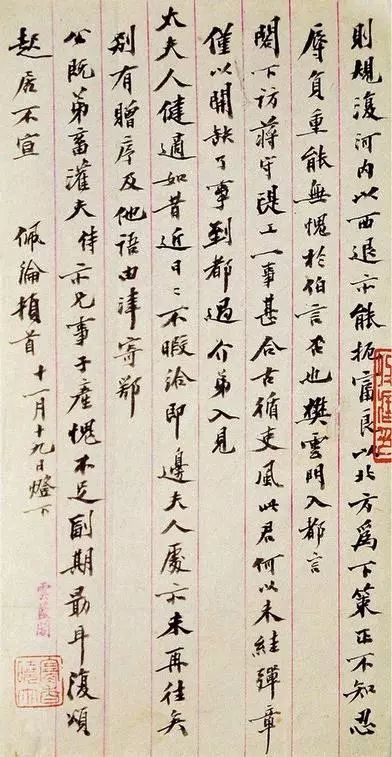 則規復河内以西退亦能扼富良以北方為下策正不知忍
辱負重能無愧於伯言否也樊雲門入都言
閣下訪蔣守堤工一事甚合古循吏風此君何以未絓彈章
僅以開缺了事到都過介弟入見
太夫人健適如昔近日〻不暇給即邊夫人處亦未再往矣
別有贈序及他語由津寄鄂
公既弟畜灌夫侍亦兄事子產愧不足副期勗耳復頌
起居不宣 佩綸頓首 十一月十九日燈下
雲藍閣